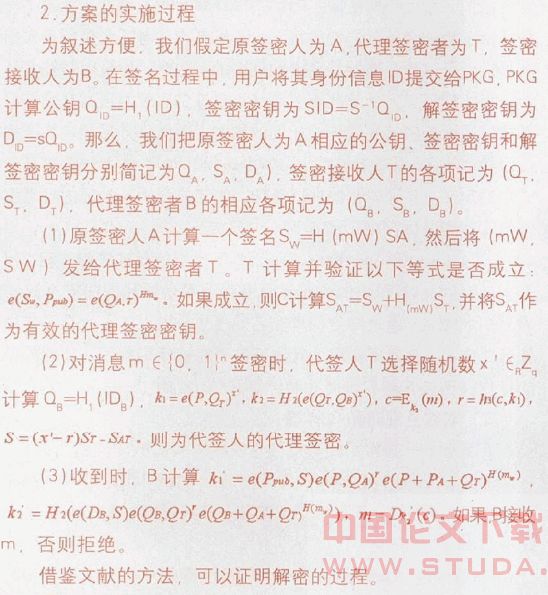 2.方案的实施过程
为叙述方便，我们假定原签密人为A,代理签密者为T，签密
接收人为B。在签名过程中，用户将其身份信息ID提交给PKG, PKG
计算公钥Q_ID=H₁(ID)，签密密钥为SID=S⁻¹Q_ID，解签密密钥为
D_ID=sQ_ID。那么，我们把原签密人为A相应的公钥、签密密钥和解
签密密钥分别简记为Q_A, S_A, D_A)，签密接收人T的各项记为 (Q_T,
S_T, D_T)，代理签密者B的相应各项记为 (Q_B, S_B, D_B)。
(1)原签密人A计算一个签名S_W=H (mW) SA, 然后将 (mW,
SW) 发给代理签密者T。T计算并验证以下等式是否成立：
e(S_w, P_pub) = e(Q_A,T)^Hm_w。如果成立,则C计算S_AT=S_W+H_(mW)S_T,并将S_AT作
为有效的代理签密密钥。
(2)对消息m∈{0, 1}ⁿ签密时，代签人T选择随机数x'∈_R Z_q
计算Q_B=H₁(ID_B)，k₁=e(P,Q_T)^x'，k₂=H₂(e(Q_T,Q_B)^x')，c=E_k₂(m)，r=h₃(c,k₁)，
S=(x'-r)S_T-S_AT。则为代签人的代理签密。
(3)收到时，B计算 k₁'=e(P_pub,S)e(P,QA)^r e(P+P_A+Q_T)^H(m_w)，
k₂'=H₂(e(D_B,S)e(Q_B,Q_T)^r e(Q_B+Q_A+Q_T)^H(m_w))，m=D_k₂'(c)。如果,B接收
m，否则拒绝。
借鉴文献的方法，可以证明解密的过程。
中国论文下载
WWW.STUDA.